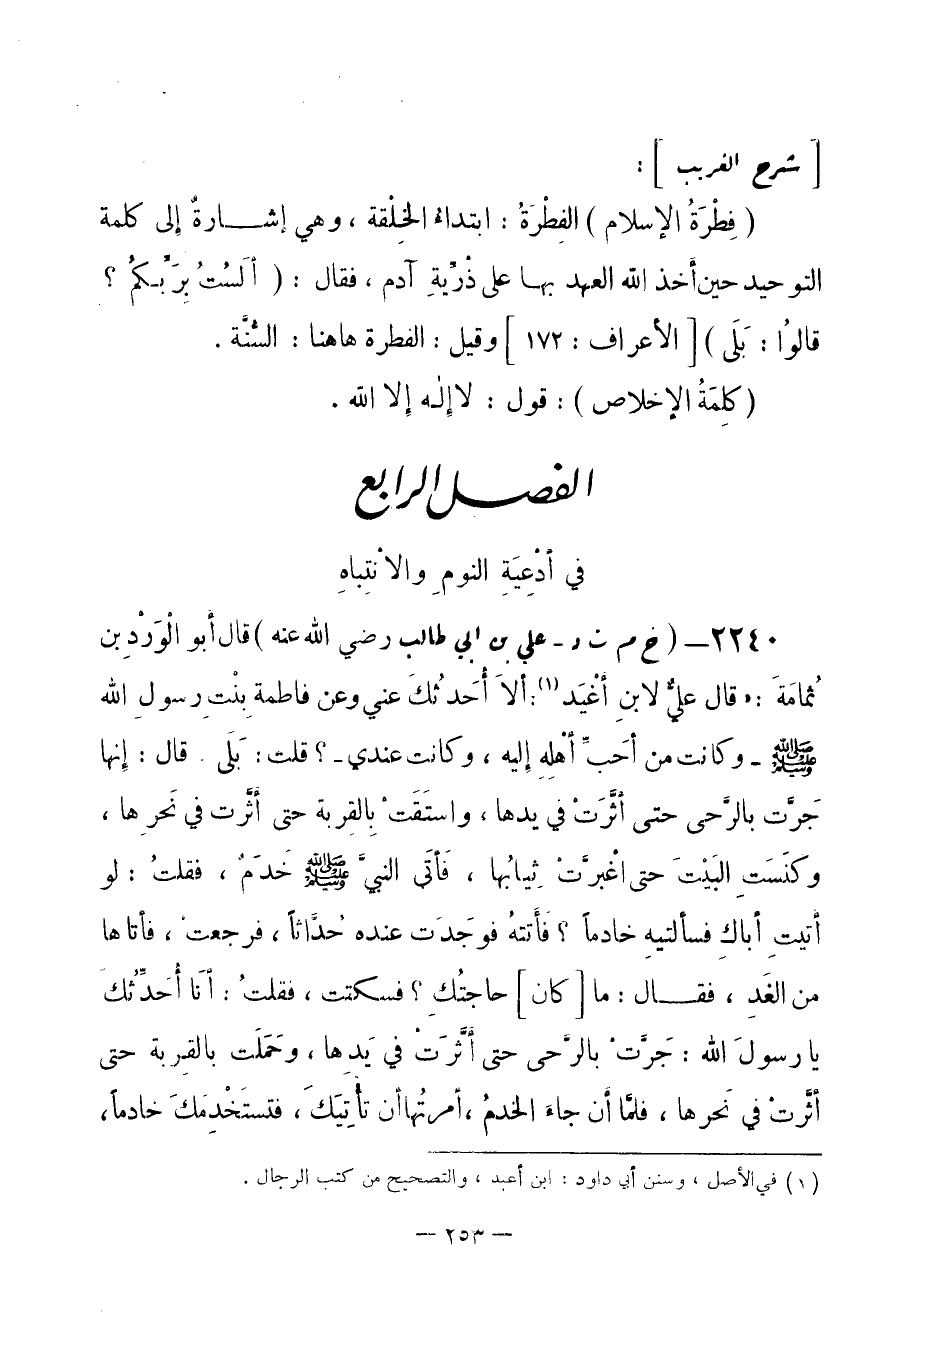 [ شرح الغريب ] :
( فِطْرَةُ الإسلام ) الفِطْرَةُ : ابتداءُ الخِلْقة ، وهي إشارةٌ إلى كلمة
التوحيد حين أَخذ الله العهد بها على ذُرِّيةِ آدم ، فقال : ( أَلَستُ بِرَبِّكمُ ؟
قالوُا : بَلَى ) [ الأعراف : ١٧٢ ] وقيل : الفطرة هاهنا : السُّنَّة .
( كلِمَةُ الإخلاص ) : قول : لا إلٰه إلا الله .
الفصل الرابع
في أَدْعِيَةِ النومِ والانْتِباهِ
٢٢٤٠ – ( خ م ت د - علي بن أبي طالب رضي الله عنه ) قال أبو الْوَرْدِ بن
ثُمامَةَ : « قال عليٌّ لابنِ أَغْيَد (١) : ألاَ أُحَدِّثُكَ عني وعن فاطمة بِنْتِ رسولِ الله
ﷺ - وكانت من أحَبِّ أَهْلِهِ إليه ، وكانت عندي - ؟ قلت : بَلَى . قال : إنها
جَرَّت بالرَّحى حتى أَثَّرَتْ في يدها ، واستَقَتْ بِالقِربة حتى أَثَّرت في نَحرِها ،
وكنَسَتِ البَيْتَ حتى اغْبرَّتْ ثِيابُها ، فَأَتَى النبيَّ ﷺ خَدَمٌ ، فقلتُ : لو
أتيتِ أباكِ فسألتيهِ خادماً ؟ فَأَتتهُ فوَجَدَت عنده حُدَّاثاً ، فرجعتْ ، فأتاها
من الغَدِ ، فقال : ما [ كان ] حاجتُكِ ؟ فسكتت ، فقلتُ : أَنَا أُحَدِّثُكَ
يا رسولَ الله : جَرَّتْ بالرَّحى حتى أَثَّرَتْ في يَدِها ، وحَمَلَت بالقِربة حتى
أَثَّرتْ في نَحرها ، فلمَّا أن جاءَ الخدمُ ، أمرتُها أن تَأتِيَكَ ، فتستَخْدِمَكَ خادماً ،
(١) في الأصل ، وسنن أبي داود : ابن أعبد ، والتصحيح من كتب الرجال .
— ٢٥٣ —